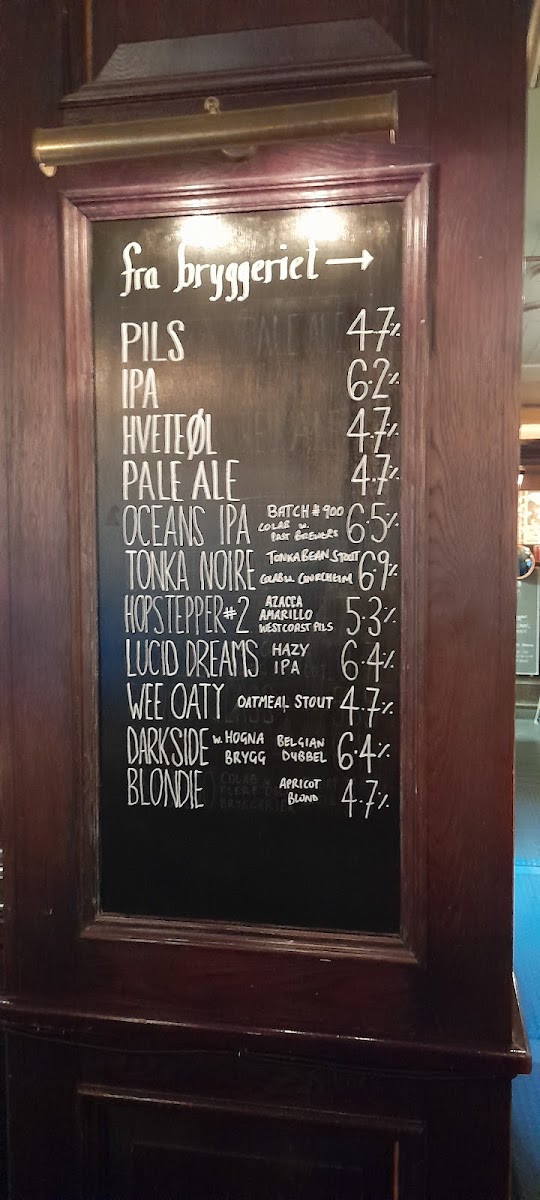 fra bryggeriet →
PILS 4.7%
IPA 6.2%
HVETEØL 4.7%
PALE ALE 4.7%
OCEANS IPA BATCH #900 COLAB w. PAST BREWERS 6.5%
TONKA NOIRE TONKA BEAN STOUT COLAB w. 6.9%
HOPSTEPPER #2 AZACCA AMARILLO WEST COAST PILS 5.3%
LUCID DREAMS HAZY IPA 6.4%
WEE OATY OATMEAL STOUT 4.7%
DARKSIDE w. HOGNA BRYGG BELGIAN DUBBEL 6.4%
BLONDIE APRICOT BLOND 4.7%